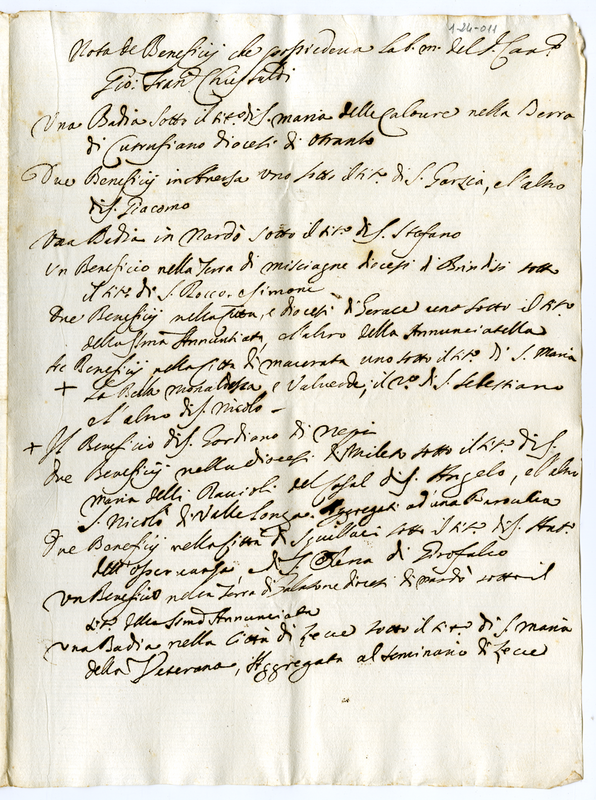 1-24-011
Nota de Beneficij che possedeva la b. m. del S. Can.co
Gio: Fran.
Una Badia sotto il tit.o di S. maria delle nella Terra
di Cutrufiano diocesi di Otranto
Due Beneficij in Aversa uno sotto il tit.o di S. , e l'altro
di S. Giacomo
Una Badia in Nardò sotto il tit.o di S. Stefano
Un Beneficio nella Terra di misciagne diocesi di Brindisi sotto
il tit.o di S. Rocco, e Simone
Due Beneficij nella Città, e diocesi di Gerace uno sotto il tit.o
della Annuntiata, e l'altro della Annunciatella
tre Beneficij nella Città di macerata uno sotto il tit.o di S. Maria
+ La Bella , e Valverde, il 2.o di S. Sebastiano
e l'altro di S. Nicolo -
+ Il Beneficio di S. Gordiano di Nepi
due Beneficij nella diocesi di Mileto sotto il tit.o di S.
maria delli del Casal di S. Angelo, e l'altro
S. Nicolò di Valle Longa. Aggregati ad una
due Beneficij nella Città di sotto il tit.o di S. Ant.o
dell' , e di S. Elena di
Un Beneficio nella Terra di Galatone diocesi di nardò sotto il
tit.o della Annunciata
Una Badia nella Città di Lecce sotto il tit.o di S. maria
della Veterana, Aggregata al seminario di Lecce